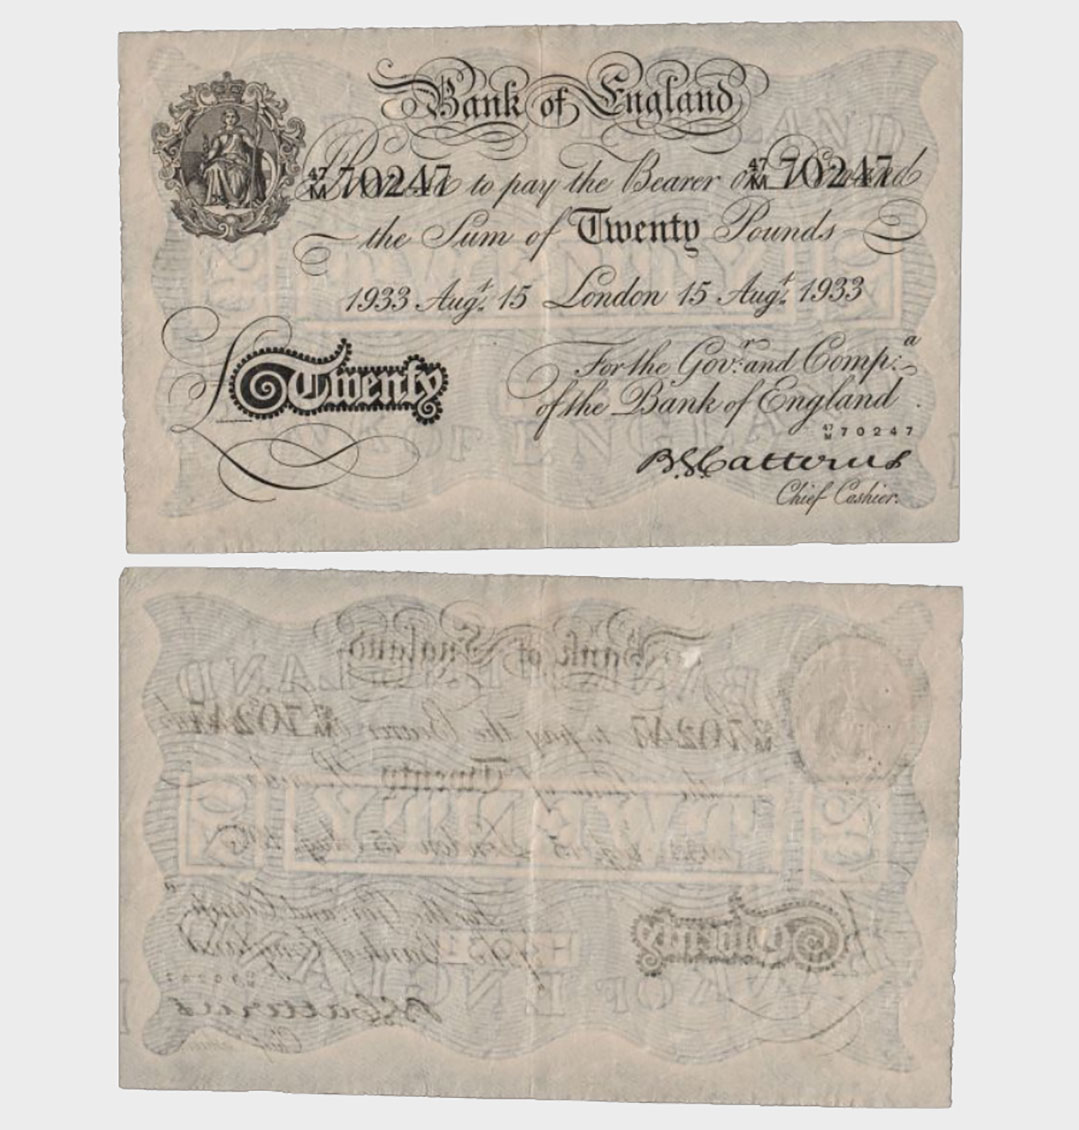 Bank of England
47/M 70247 to pay the Bearer on Demand 47/M 70247
the Sum of Twenty Pounds
1933 Augt. 15 London 15 Augt. 1933
For the Govr. and Compa.
£ Twenty
of the Bank of England
47/M 70247
B.G. Catterns
Chief Cashier.